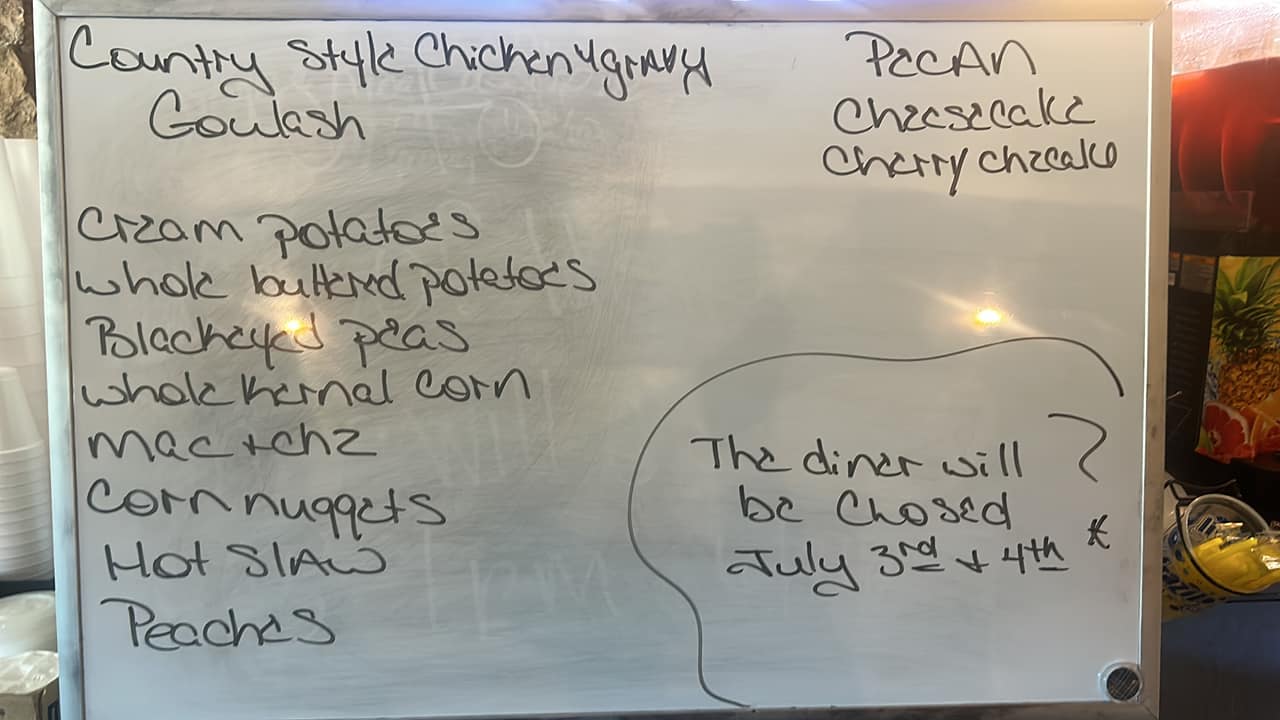 Country Style Chicken y gravy
Goulash
Cream potatoes
whole buttered potetoes
Blackeyed peas
whole kernal corn
mac + chz
Corn nuggets
Hot Slaw
Peaches
Pecan
Cheesecake
Cherry chzcake
The diner will
be Chosed
July 3rd + 4th *